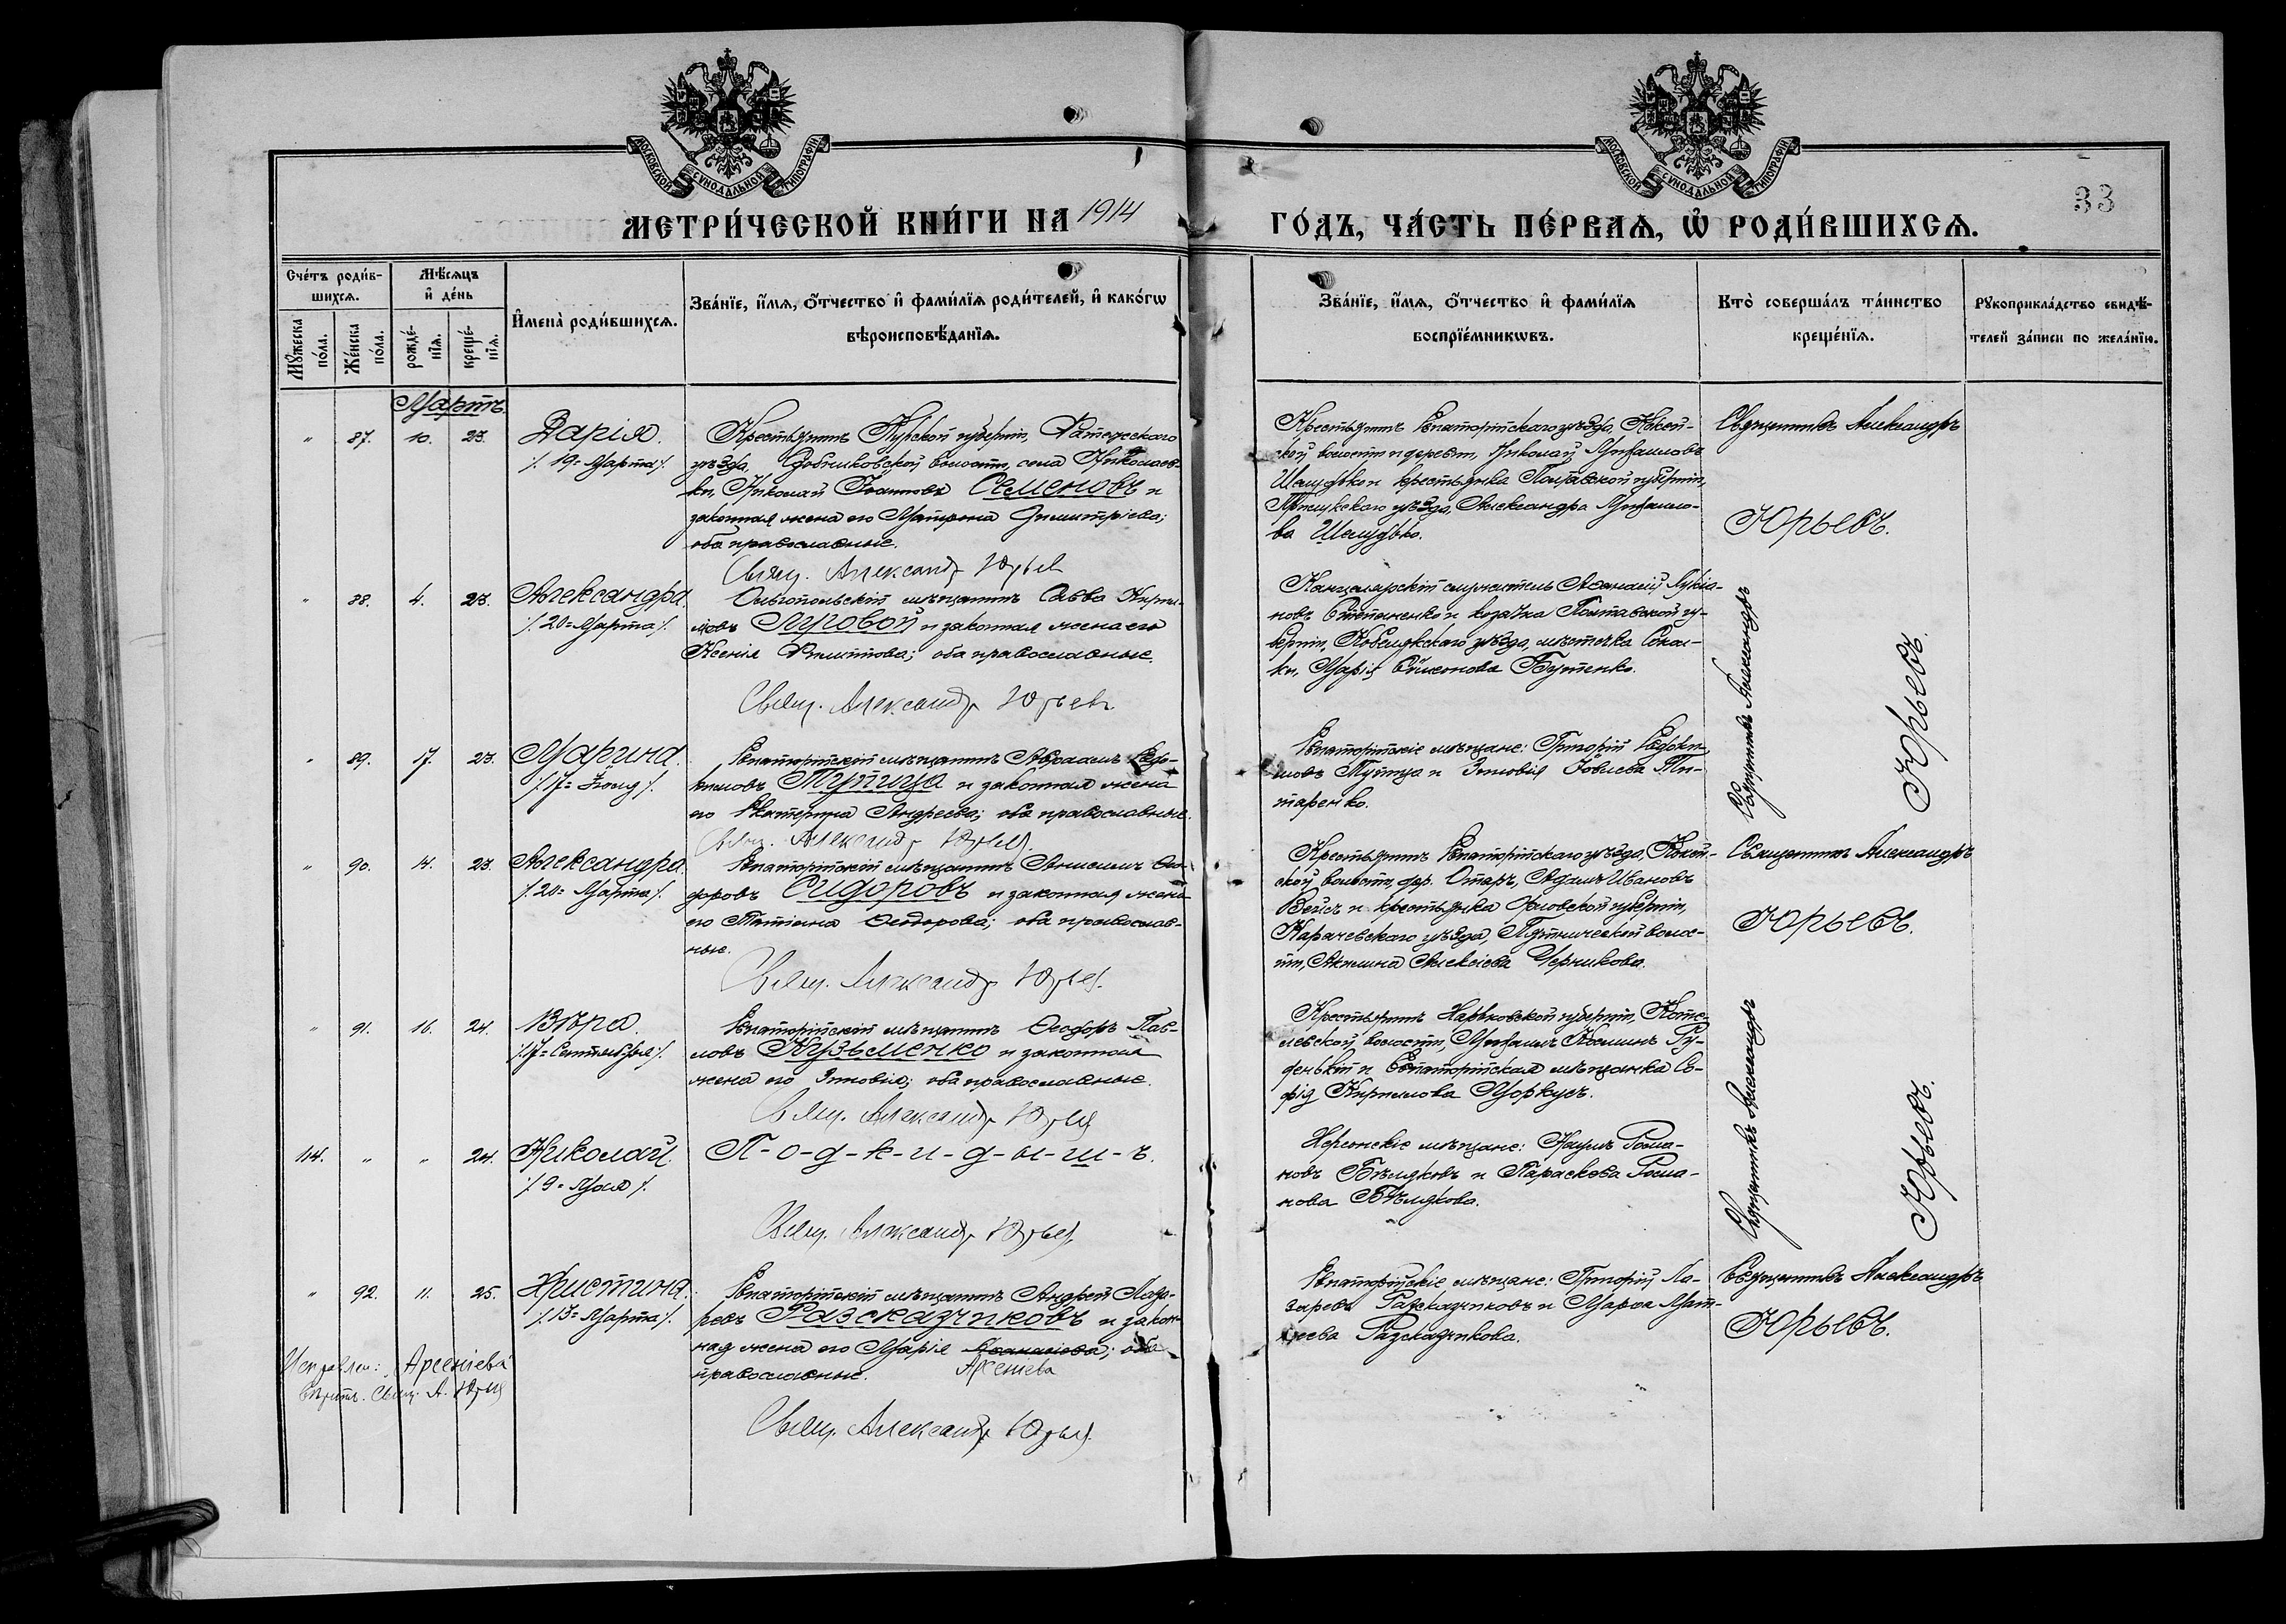 МОСКОВСКОЙ СѴНОДАЛЬНОЙ ТИПОГРАФІИ
МОСКОВСКОЙ СѴНОДАЛЬНОЙ ТИПОГРАФІИ
33
МЕТРИ́ЧЕСКОЙ КНИ́ГИ НА 1914 ГО́ДЪ, ЧА́СТЬ ПЕ́РВАѦ, Ѡ҆ РОДИ́ВШИХСѦ.
Сче́тъ роди́вшихсѧ.
Мꙋ́жеска по́ла.
Же́нска по́ла.
Мѣ́сѧцъ и҆ де́нь
рожде́нїѧ.
креще́нїѧ.
И҆мена̀ роди́вшихсѧ.
Зва́нїе, и҆́мѧ, ѻ҆́тчество и҆ фами́лїѧ роди́телей, и҆ како́гѡ
вѣроисповѣ́данїѧ.
Зва́нїе, и҆́мѧ, ѻ҆́тчество и҆ фами́лїѧ
воспрїе́мникѡвъ.
Кто̀ соверша́лъ та́инство
креще́нїѧ.
Рꙋкоприкла́дство свидѣ́-
телей за́писи по жела́нїю.
Мартъ.
" 87. 10. 23. Дарія.
/. 19= Марта /.
Крестьянинъ Курской губерніи, Фатежскаго
уѣзда, волости, села Николаев-
ки, Николай Іоанновъ Семеновъ и
законная жена его Матрона Димитріева;
оба православные.
Свящ. Александръ Юрьевъ
Крестьянинъ Евпаторійскаго уѣзда,
ской волости и деревни, Николай Михаиловъ
Шелудько и крестьянка Полтавской губерніи,
Прилукскаго уѣзда, Александра Михаило-
ва Шелудько.
Священникъ Александръ
Юрьевъ.
" 88. 4. 23. Александра.
/. 20= Марта /.
Ольгопольскій мѣщанинъ Савва Кирил-
ловъ Луговой и законная жена его
Ксенія Филиппова; оба православные.
Свящ. Александръ Юрьевъ
Канцелярскій служитель Аѳанасій Лукіа-
новъ Степаненко и козачка Полтавской гу-
берніи, Кобелякскаго уѣзда, мѣстечка Сокол-
ки, Марія Симеонова Бутенко.
Священникъ Александръ
Юрьевъ.
" 89. 17. 23. Марина.
/. 17= Іюля /.
Евпаторійскій мѣщанинъ Авраамъ Евдо-
кимовъ Тупица и законная жена
его Екатерина Андреева; оба православные.
Свящ. Александръ Юрьевъ.
Евпаторійскіе мѣщане: Григорій Евдоки-
мовъ Тупица и Зиновія Іовлева Ти-
таренко.
" 90. 14. 23. Александра.
/. 20= Марта /.
Евпаторійскій мѣщанинъ Анисимъ Ѳео-
доровъ Сидоровъ и законная жена
его Татіана Ѳеодорова; оба православ-
ные.
Свящ. Александръ Юрьевъ.
Крестьянинъ Евпаторійскаго уѣзда,
ской волости, др. Отаръ, Адамъ Ивановъ
Вейсъ и крестьянка Орловской губерніи,
Карачевскаго уѣзда, воло-
сти, Акилина Алексіева Черникова.
Священникъ Александръ
Юрьевъ.
" 91. 16. 24. Вѣра.
/. 17= Сентября /.
Евпаторійскій мѣщанинъ Ѳеодоръ Пав-
ловъ Кузьменко и законная
жена его Зиновія; оба православные.
Свящ. Александръ Юрьевъ
Крестьянинъ Харьковской губерніи, Коте-
левской волости, Михаилъ Косминъ Ру-
денькій и Евпаторійская мѣщанка Со-
фія Кириллова Моркусъ.
Священникъ Александръ
Юрьевъ.
114. " " 24. Николай.
/. 9= Мая /.
П-о-д-к-и-д-ы-ш-ъ.
Свящ. Александръ Юрьевъ.
Херсонскіе мѣщане: Наумъ Рома-
новъ Бѣляковъ и Параскева Рома-
нова Бѣлякова.
" 92. 11. 25. Христина.
/. 13= Марта /.
Евпаторійскій мѣщанинъ Андрей Лаза-
ревъ Разсказчиковъ и закон-
ная жена его Марія Аѳанасіева; оба
православные. Арсеніева
Свящ. Александръ Юрьевъ.
Евпаторійскіе мѣщане: Григорій Ла-
заревъ Разсказчиковъ и Марѳа Мат-
ѳеева Разсказчикова.
Священникъ Александръ
Юрьевъ.
Исправлен.: „Арсеніева“
вѣрить. Свящ. А. Юрьевъ